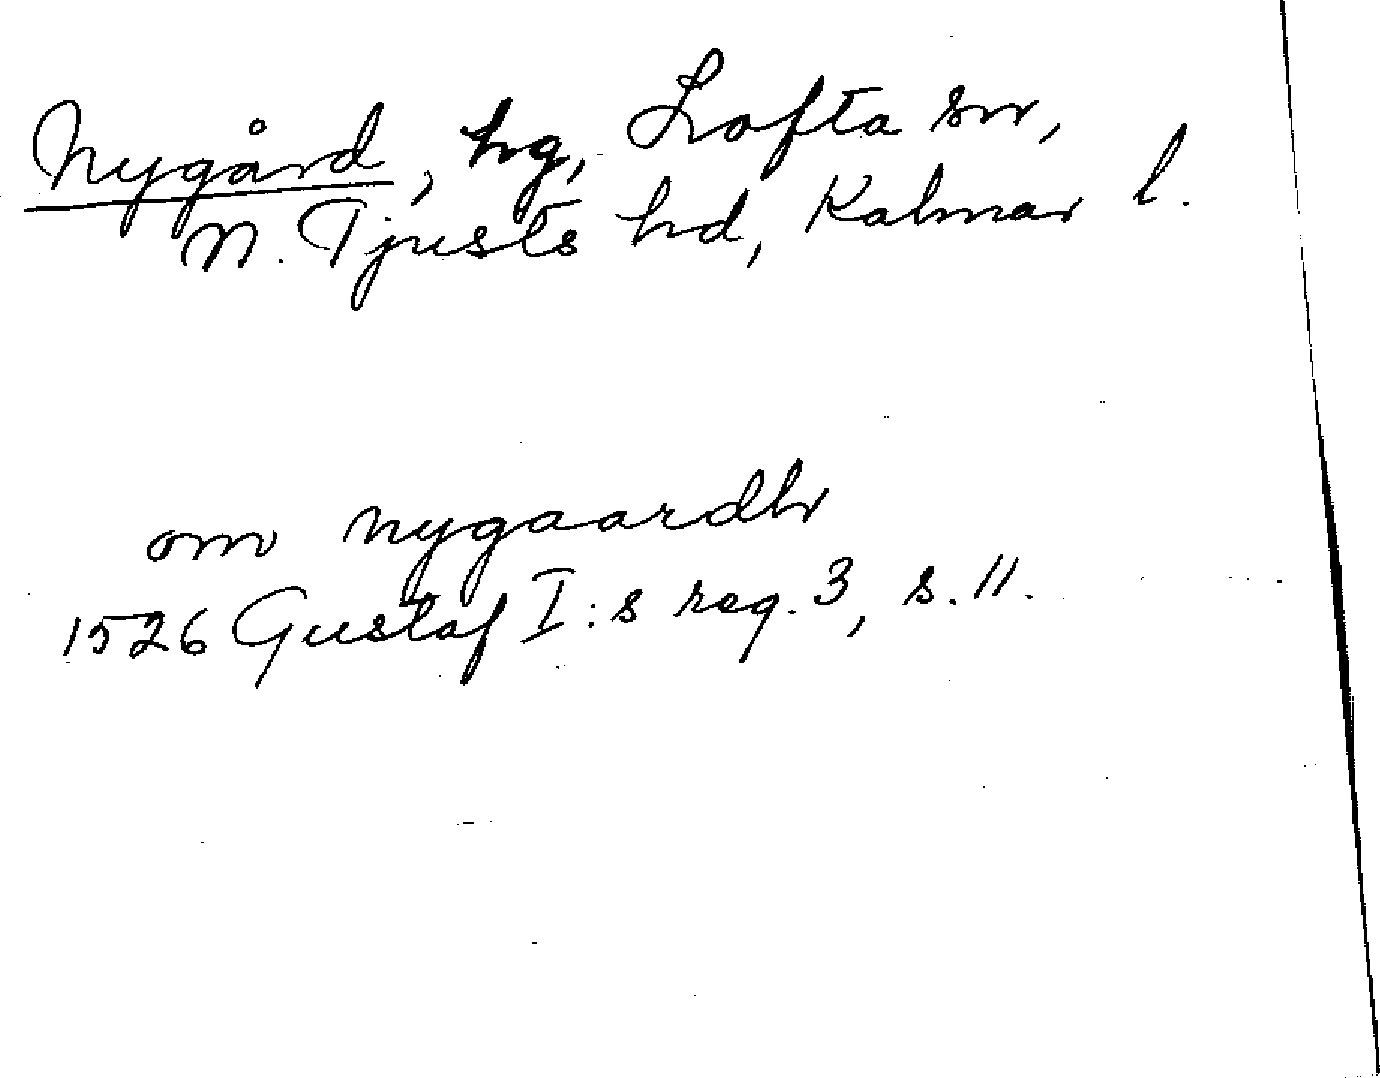 Nygård, hg, Lofta sn,
N. Tjusts hd, Kalmar l.
om nygaardh
1526 Gustaf I:s reg. 3, s. 11.